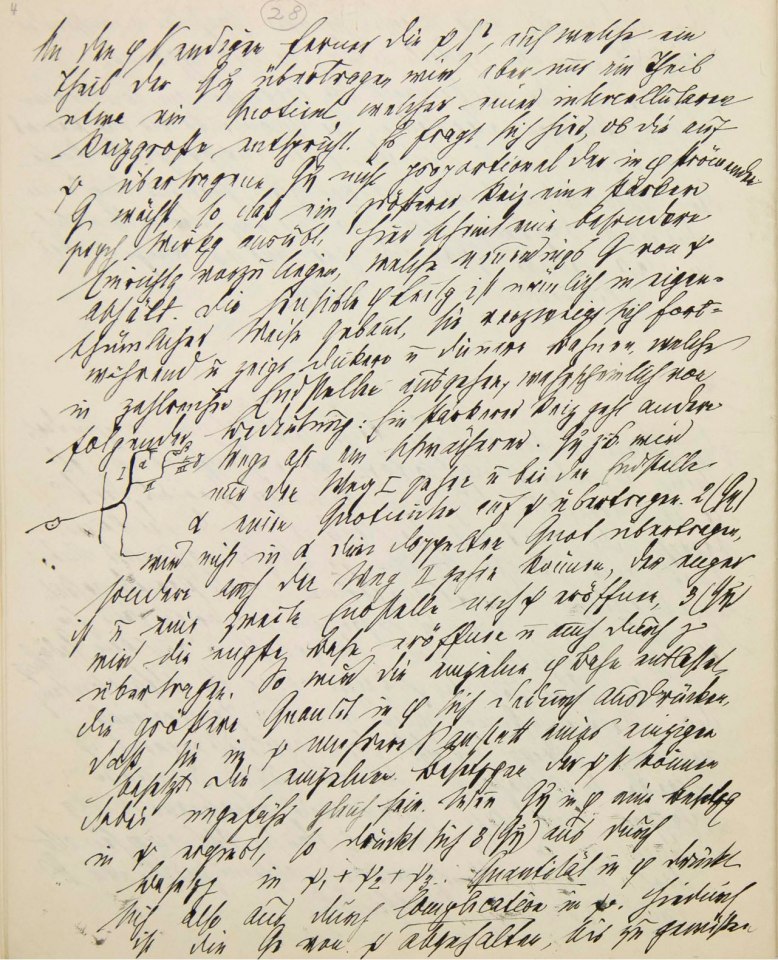 4
28
An den φ N endigen ferner die ψ N, auf welche ein
Theil der Qη übertragen wird, aber nur ein Theil
etwa ein Quotient, welcher einer intercellulären
Reizgröße entspricht. Es fragt sich hier, ob die auf
ψ übertragene Qη nicht proportional der in φ strömenden
Q wächst, so daß ein größerer Reiz eine stärkere
psych Wirkg ausübt. Hier scheint eine besondere
Einrichtg vorzuliegen, welche neuerdings Q von ψ
abhält. Die sensible φ Leitg ist nämlich in eigen-
thümlicher Weise gebaut, sie verzweigt sich fort-
während u zeigt dickere u dünnere Bahnen, welche
in zahlreiche Endstellen ausgehen, wahrscheinlich von
folgender Bedeutung: Ein stärkerer Reiz geht andere
Wege als ein schwächerer. Qη zB wird
nur den Weg I gehen u bei der Endstelle
α einen Quotienten auf ψ übertragen. 2(Qη)
wird nicht in α den doppelten Quot übertragen,
sondern auch den Weg II gehen können, der enger
ist u eine zweite Endstelle nach ψ eröffnen, 3(Qη)
wird die engste Bahn eröffnen u auch durch γ
übertragen. So wird die einzelne φ Bahn entlastet,
die größere Quantit in φ sich dadurch ausdrücken,
daß sie in ψ mehrere N anstatt eines einzigen
besetzt. Die einzelnen Besetzgen der ψ N können
dabei ungefähr gleich sein. Wenn Qη in φ eine Besetzg
in ψ ergibt, so drückt sich 3(Qη) aus durch
Besetzg in ψ1 + ψ2 + ψ3. Quantität in φ drückt
sich also aus durch Complication in ψ. Hiedurch
ist die Q von ψ abgehalten, bis zu gewissen